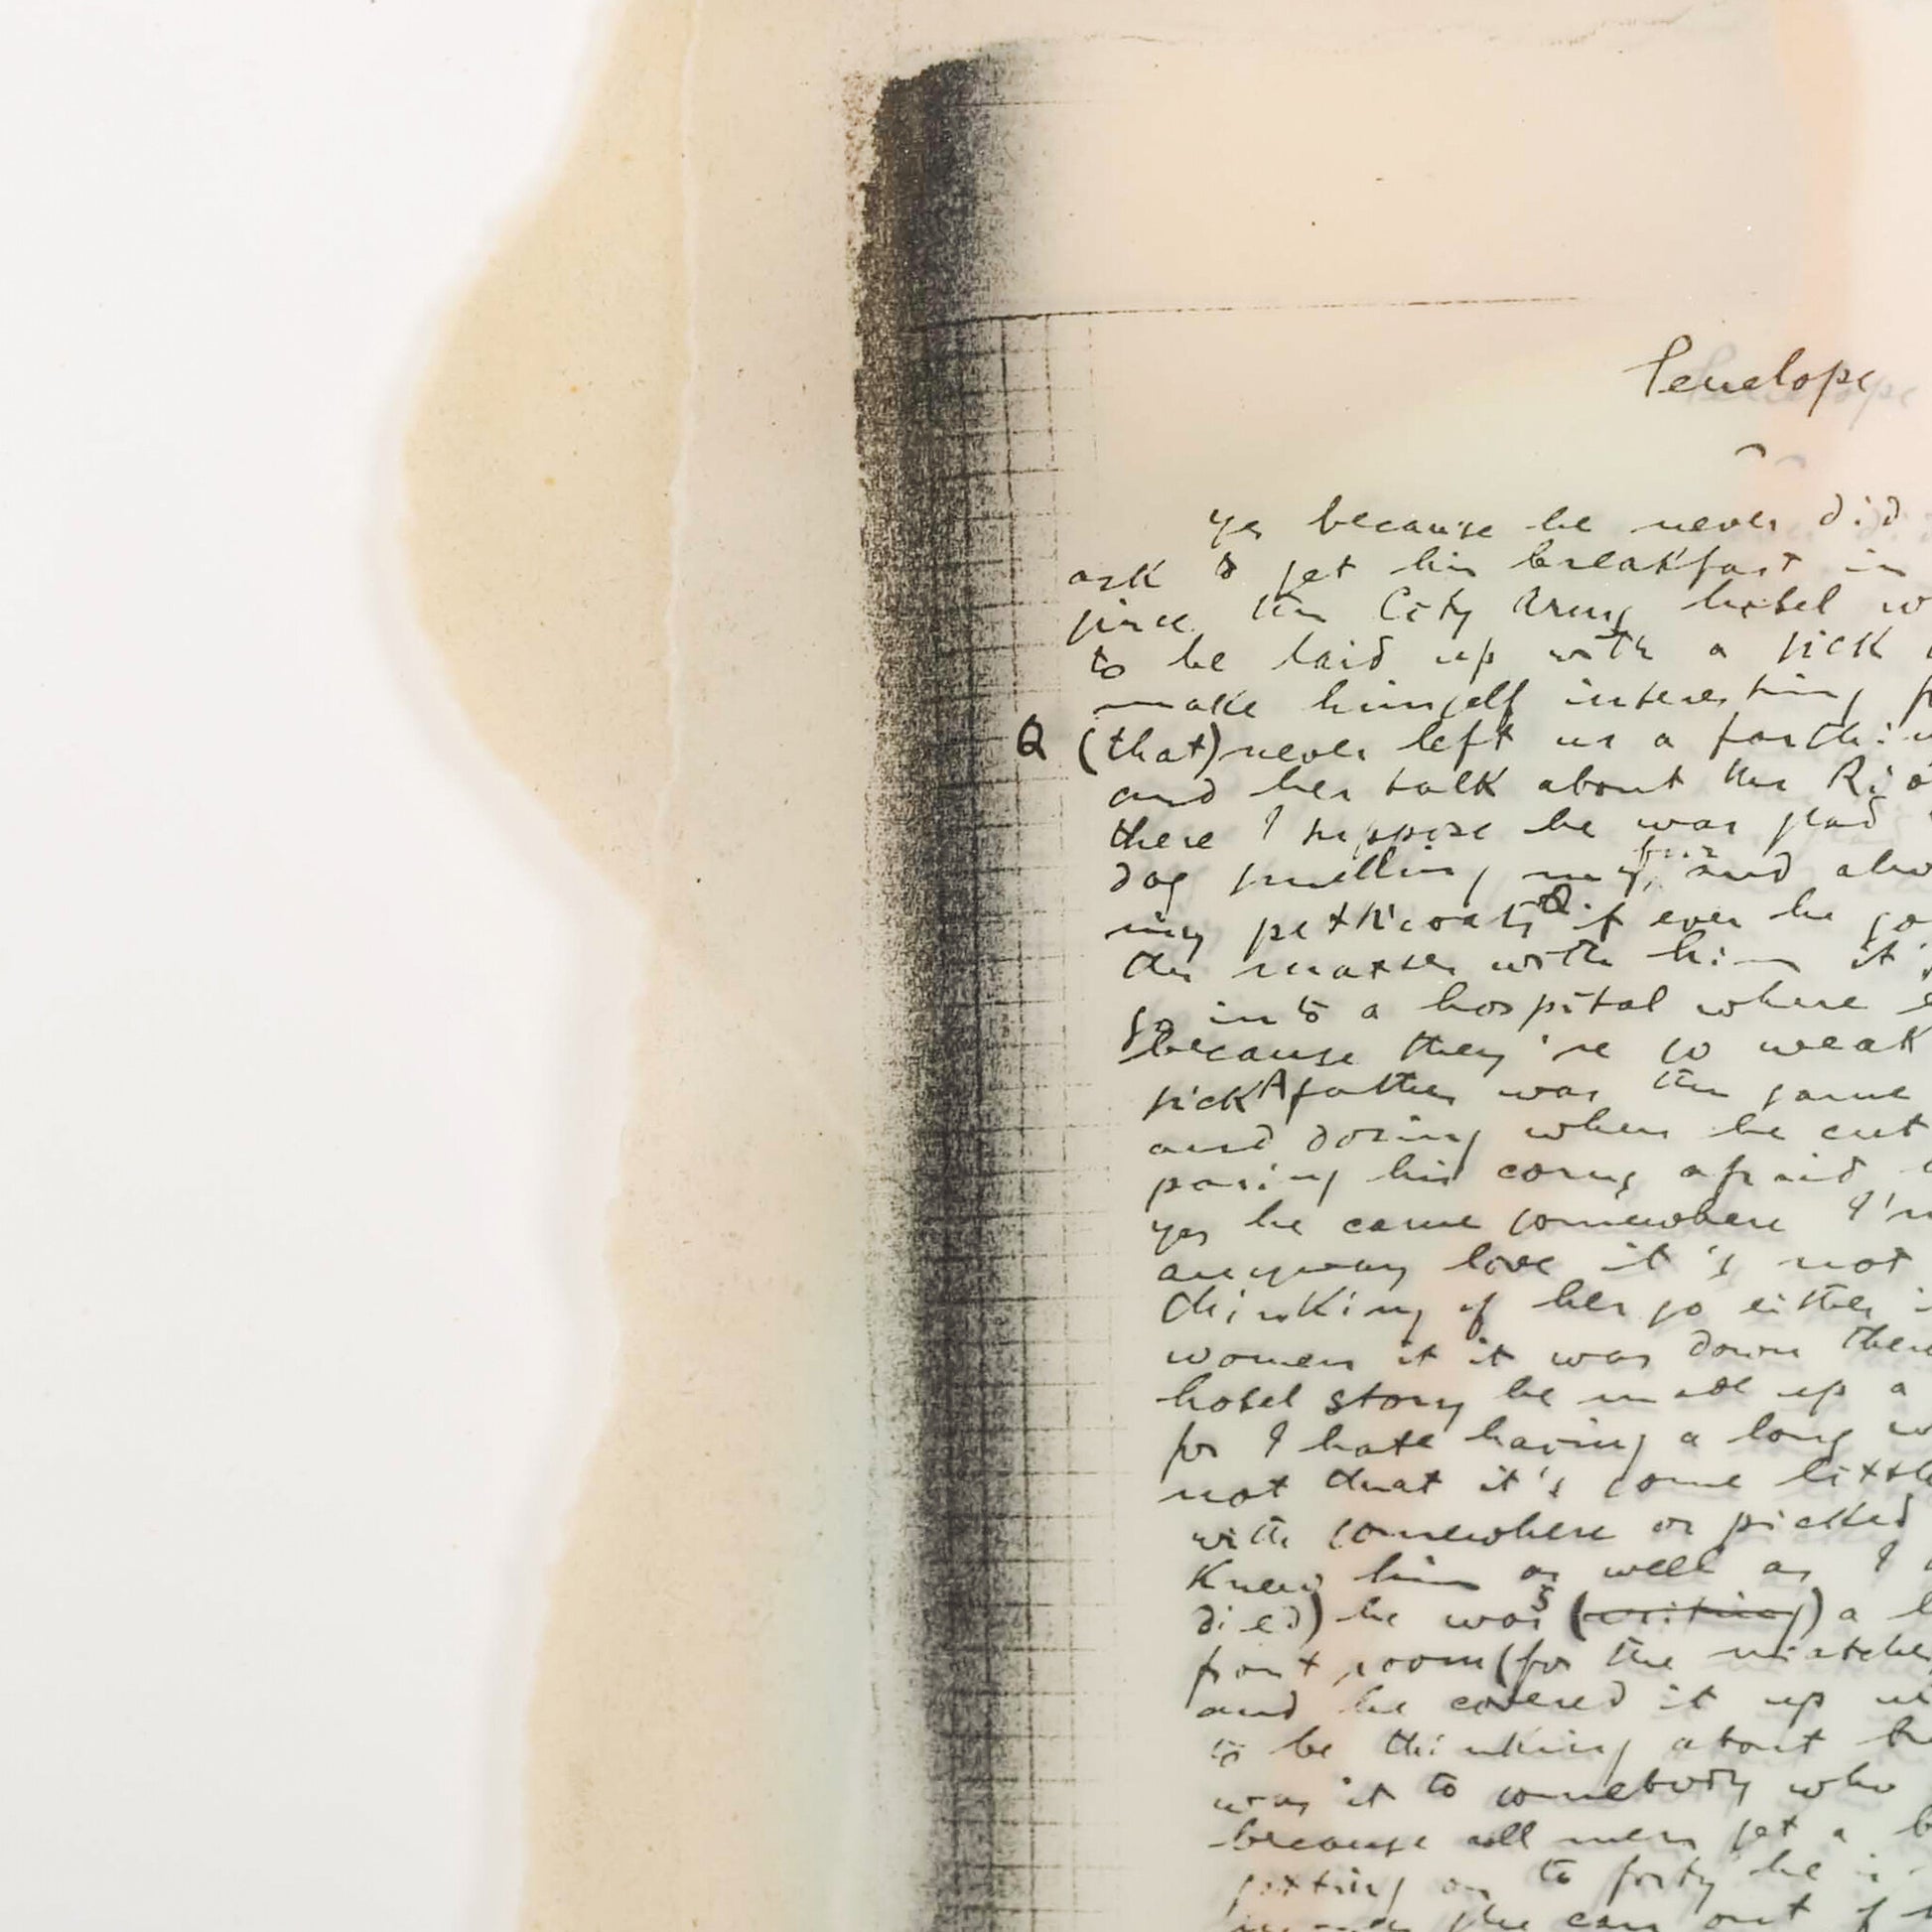 Penelope
yes because he never did
ask to get his breakfast in
since the City Arms hotel w
to be laid up with a sick
make himself interesting
Q (that) never left us a farthi
and her talk about Mr Rio
there I suppose he was glad
fur
dog smelling my and alw
my petticoats Q. if ever he go
the matter with him it
go into a hospital where
because they're so weak
sick A father was the same
and dosing when he cut
paring his corns afraid
yes he came somewhere I'm
anyway love it's not
thinking of her so either
women it it was down ther
hotel story he made up a
for I hate having a long w
not that it's some little
with somewhere or picked
knew him as well as I
S
died) he was (writing) a l
front room (for the matche
and he covered it up
to be thinking about h
was it to somebody who
because all men get a b
getting on to forty he i
she can out of